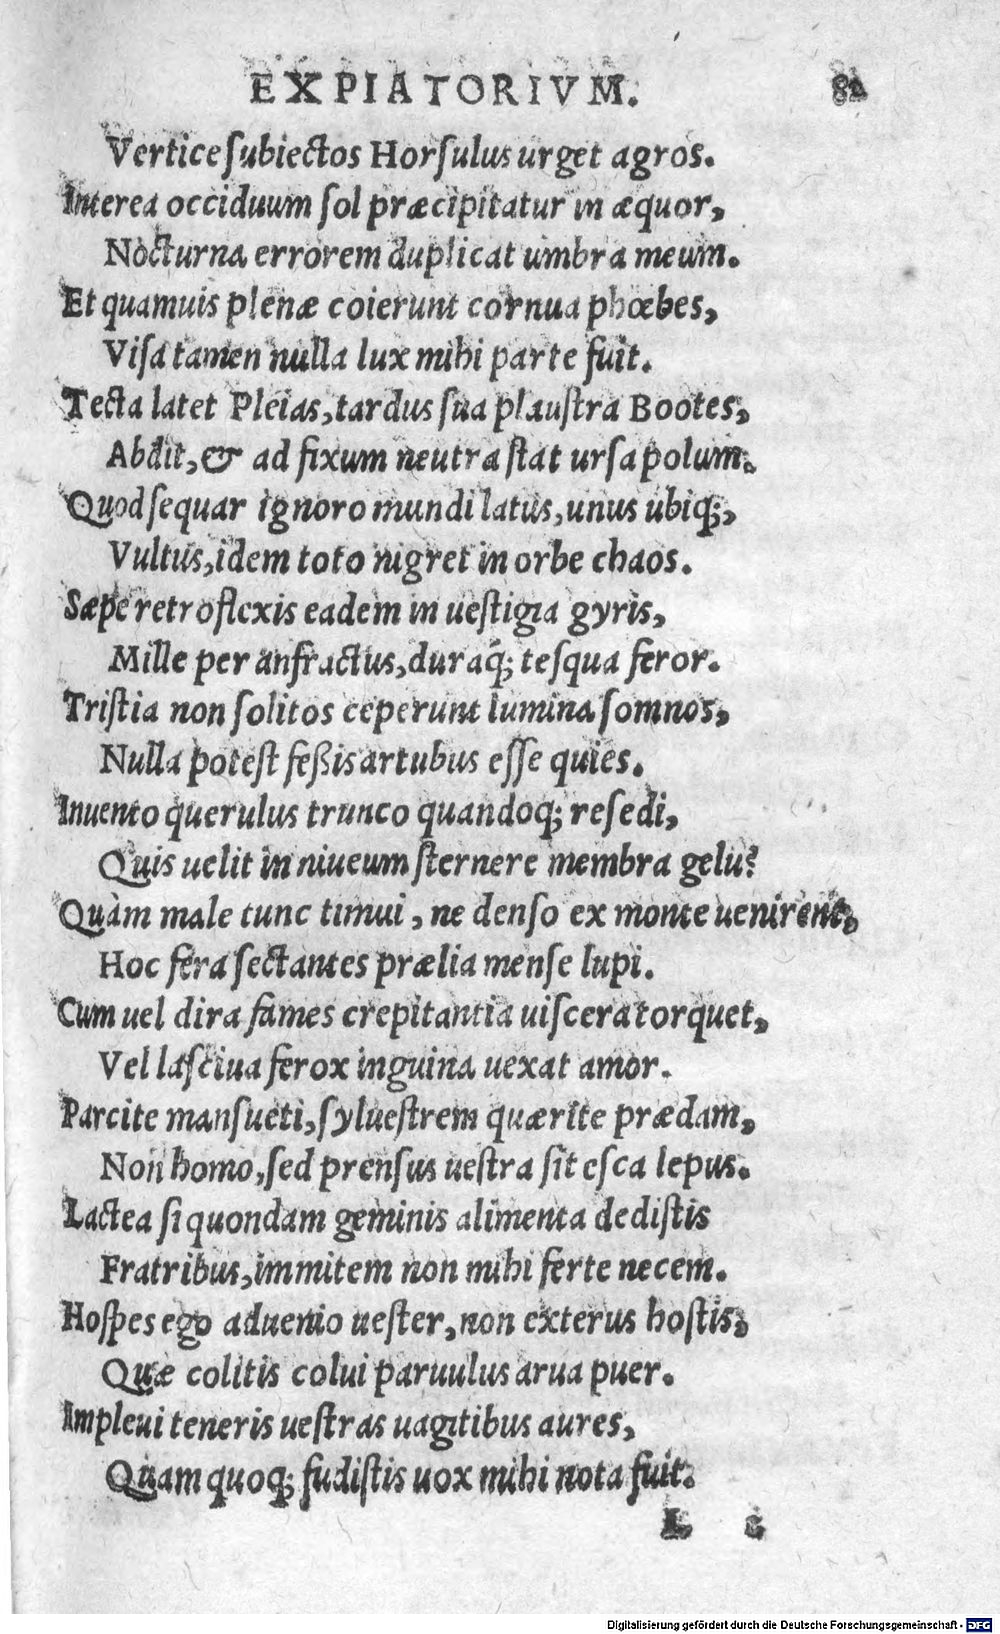 EXPIATORIVM. 82
Vertice ſubiectos Horſulus urget agros.
Interea occiduum ſol præcipitatur in æquor,
Nocturna errorem duplicat umbra meum.
Et quamuis plenæ coierunt cornua phœbes,
Viſa tamen nulla lux mihi parte fuit.
Tecta latet Pleias, tardus ſua plauſtra Bootes,
Abdit, & ad fixum neutra ſtat urſa polum.
Quod ſequar ignoro mundi latus, unus ubiq;,
Vultus, idem toto nigret in orbe chaos.
Sæpe retroflexis eadem in ueſtigia gyris,
Mille per anfractus, duraq́; teſqua feror.
Triſtia non ſolitos ceperunt lumina ſomnos,
Nulla poteſt feßis artubus eſſe quies.
Inuento querulus trunco quandoq; reſedi,
Quis uelit in niueum ſternere membra gelu?
Quàm male tunc timui, ne denſo ex monte uenirent,
Hoc fera ſectantes prælia menſe lupi.
Cum uel dira fames crepitantia uiſcera torquet,
Vel laſciua ferox inguina uexat amor.
Parcite manſueti, ſylueſtrem quærite prædam,
Non homo, ſed prenſus ueſtra ſit eſca lepus.
Lactea ſi quondam geminis alimenta dediſtis
Fratribus, immitem non mihi ferte necem.
Hoſpes ego aduenio ueſter, non exterus hoſtis,
Quæ colitis colui paruulus arua puer.
Impleui teneris ueſtras uagitibus aures,
Quam quoq; fudiſtis uox mihi nota fuit.
L
Digitalisierung gefördert durch die Deutsche Forschungsgemeinschaft - DFG